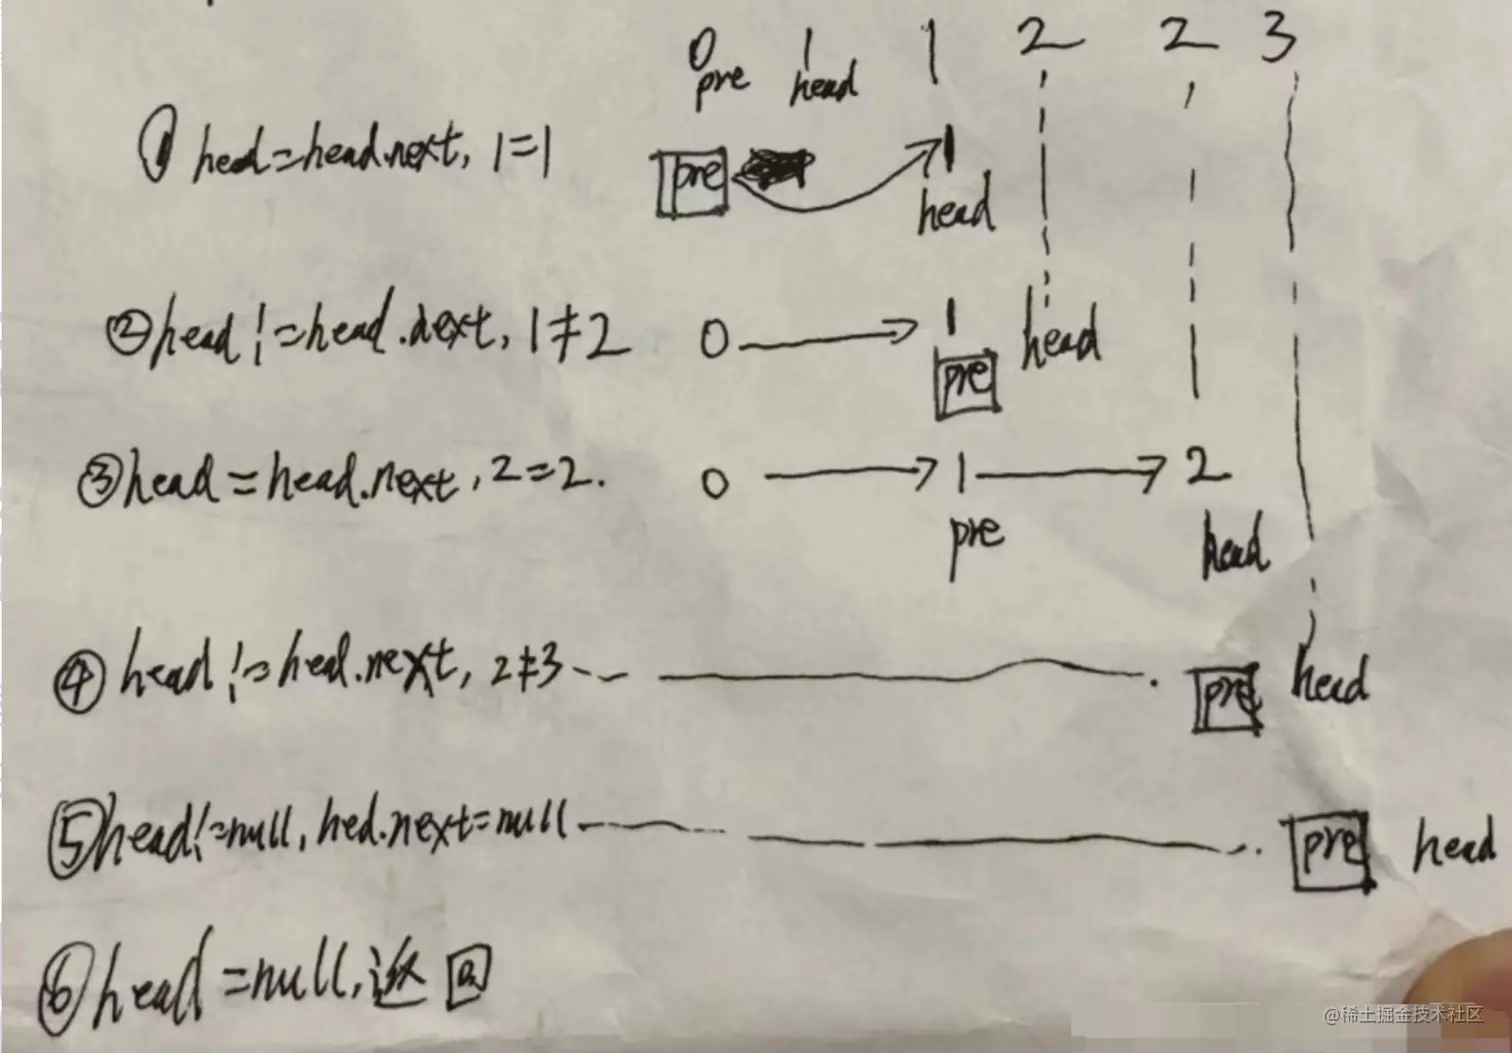 0 1 1 2 2 3
pre head
① head=head.next, 1=1 pre 1
head
② head!=head.next, 1≠2 0 1 head
pre
③ head=head.next, 2=2. 0 1 2
pre head
④ head!=head.next, 2≠3 pre head
⑤ head!=null, hed.next=null pre head
⑥ head=null, 返回
@稀土掘金技术社区